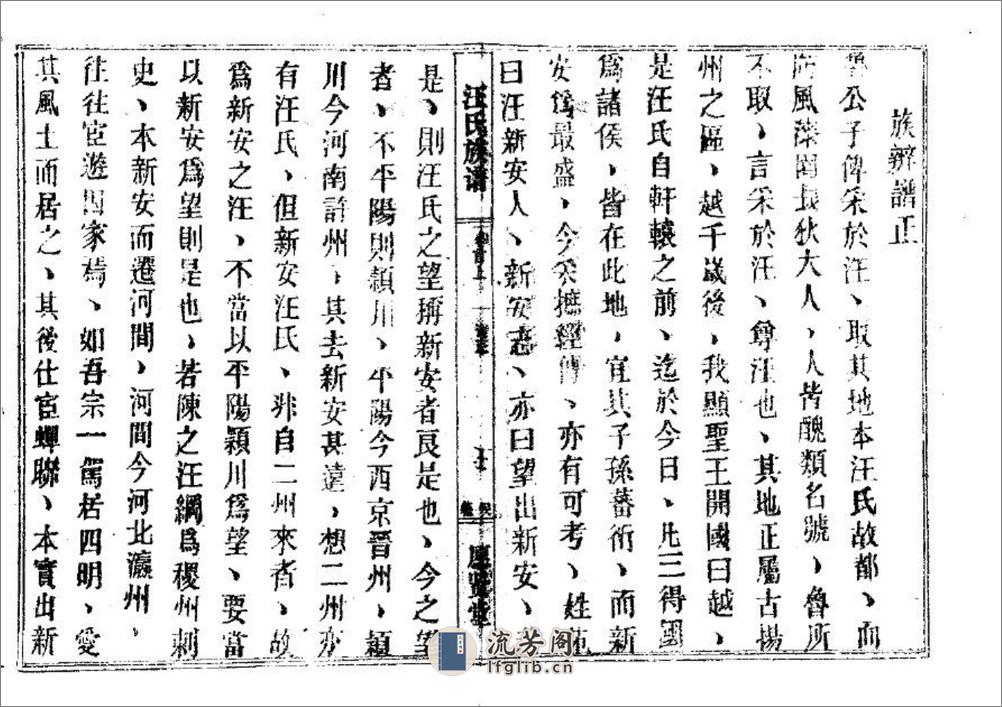 族辨譜正
公子俾采於汪、取其地本汪氏故都、而
風漆閣長狄大人、人皆醜類名號、魯所
不取、言采於汪、尊汪也、其地正屬古揚
州之區、越千歲後、我顯聖王開國曰越、
是汪氏自軒轅之前、迄於今日、凡三得國
爲諸侯、皆在此地、宜其子孫蕃衍、而新
安爲最盛、今采摭經傳、亦有可考、姓苑
曰汪新安人、新安志、亦曰望出新安、
汪氏族譜
卷首上
是、則汪氏之望稱新安者良是也、今之望
者、不平陽則潁川、平陽今西京晉州、潁
川今河南許州、其去新安甚遠、想二州亦
有汪氏、但新安汪氏、非自二州來者、故
爲新安之汪、不當以平陽潁川爲望、要當
以新安爲望則是也、若陳之汪綱爲稷州刺
史、本新安而遷河間、河間今河北瀛州、
往往宦遊因家焉、如吾宗一駕居四明、愛
其風土而居之、其後仕宦蟬聯、本實出新
流芳阁
lfglib.cn